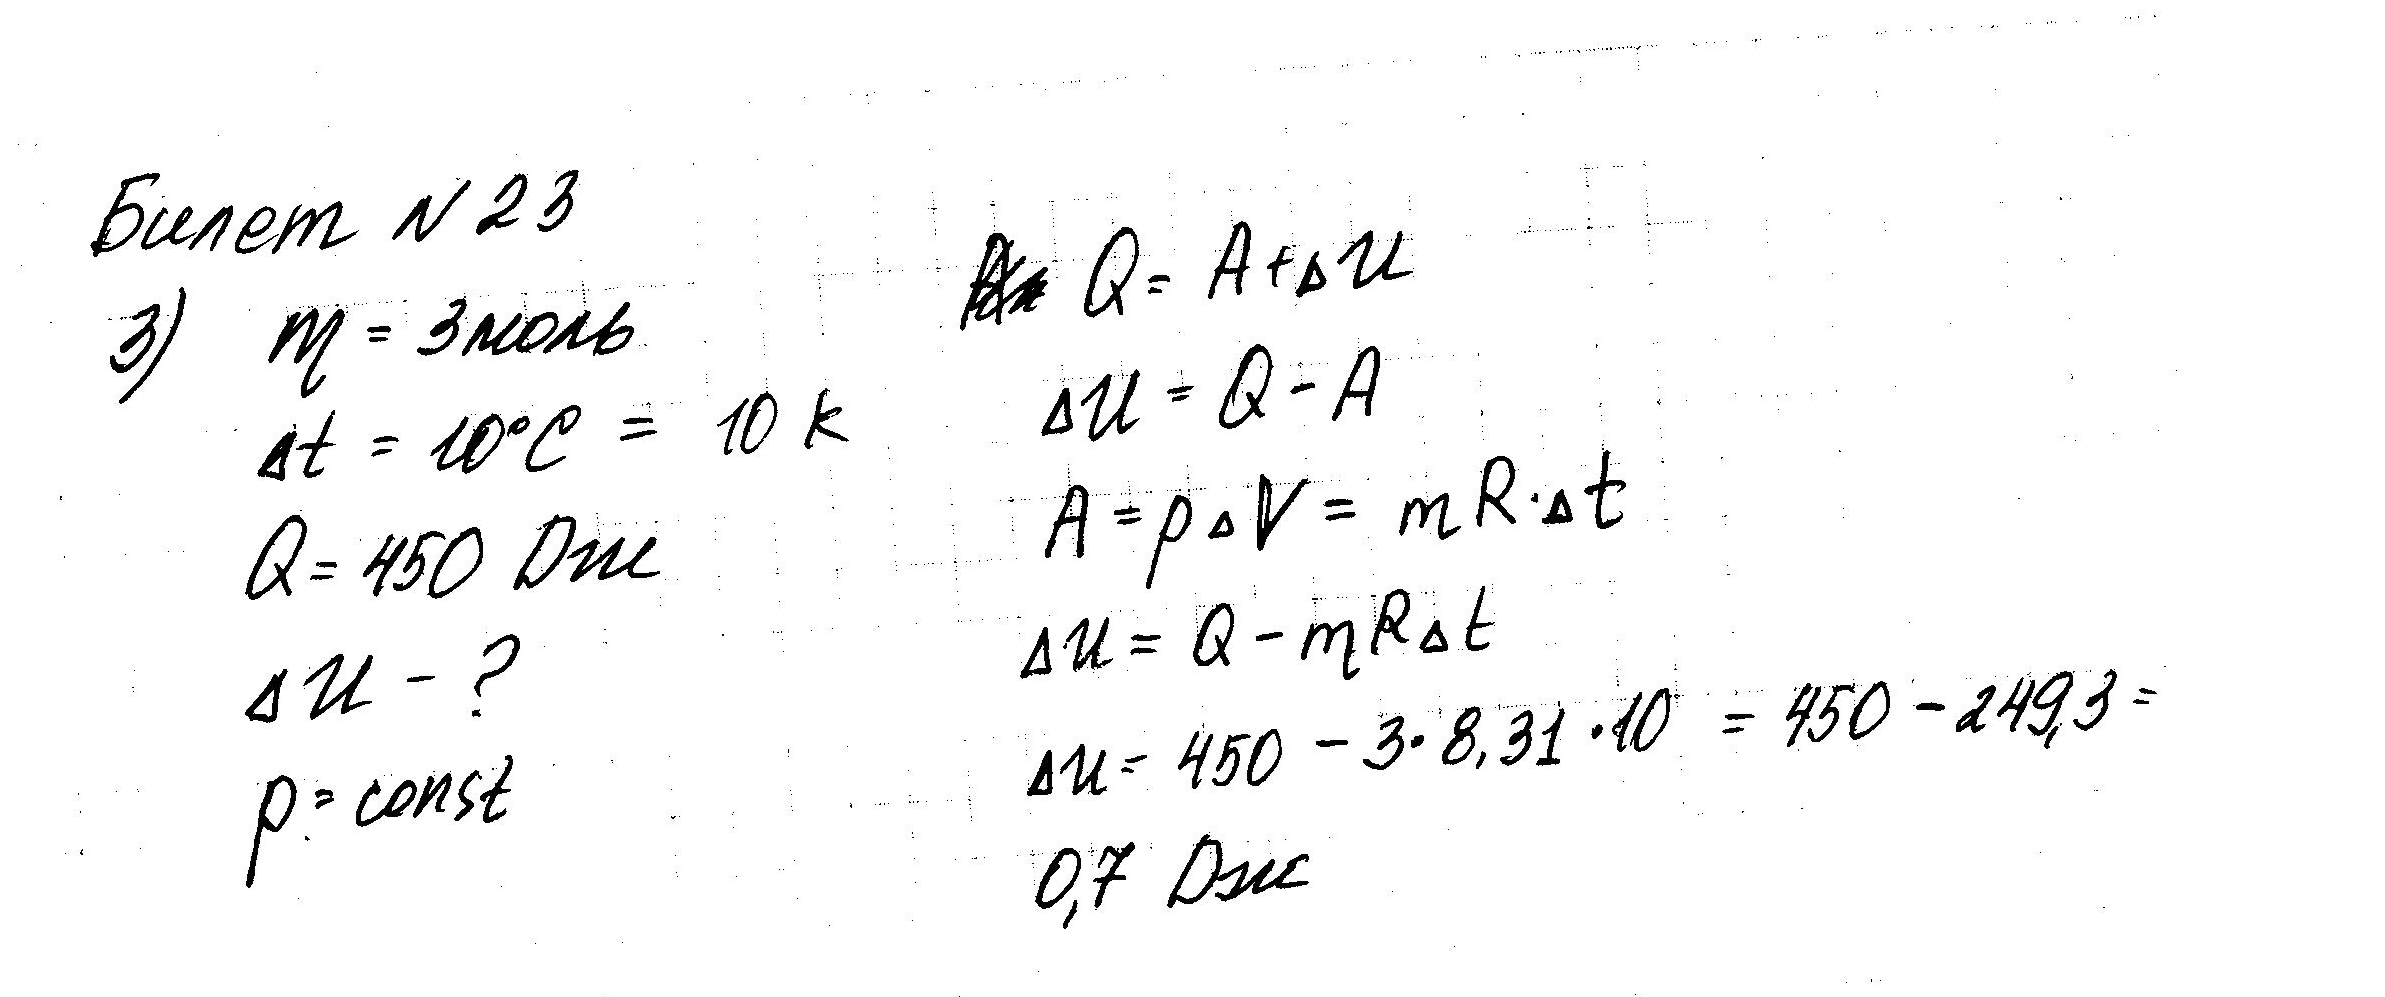 Билет N 23
3) m = 3 моль
Δt = 10°C = 10 k
Q = 450 Dж
ΔU - ?
p = const
Q = A + ΔU
ΔU = Q - A
A = pΔV = mR·Δt
ΔU = Q - mRΔt
ΔU = 450 - 3·8,31·10 = 450 - 249,3 =
0,7 Dж